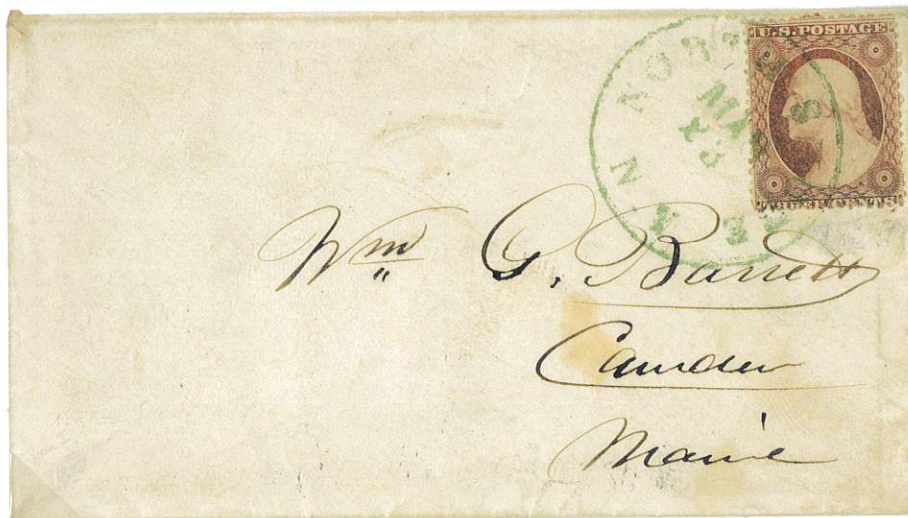 U.S. POSTAGE
THREE CENTS
Wm G. Barrett
Camden
Maine